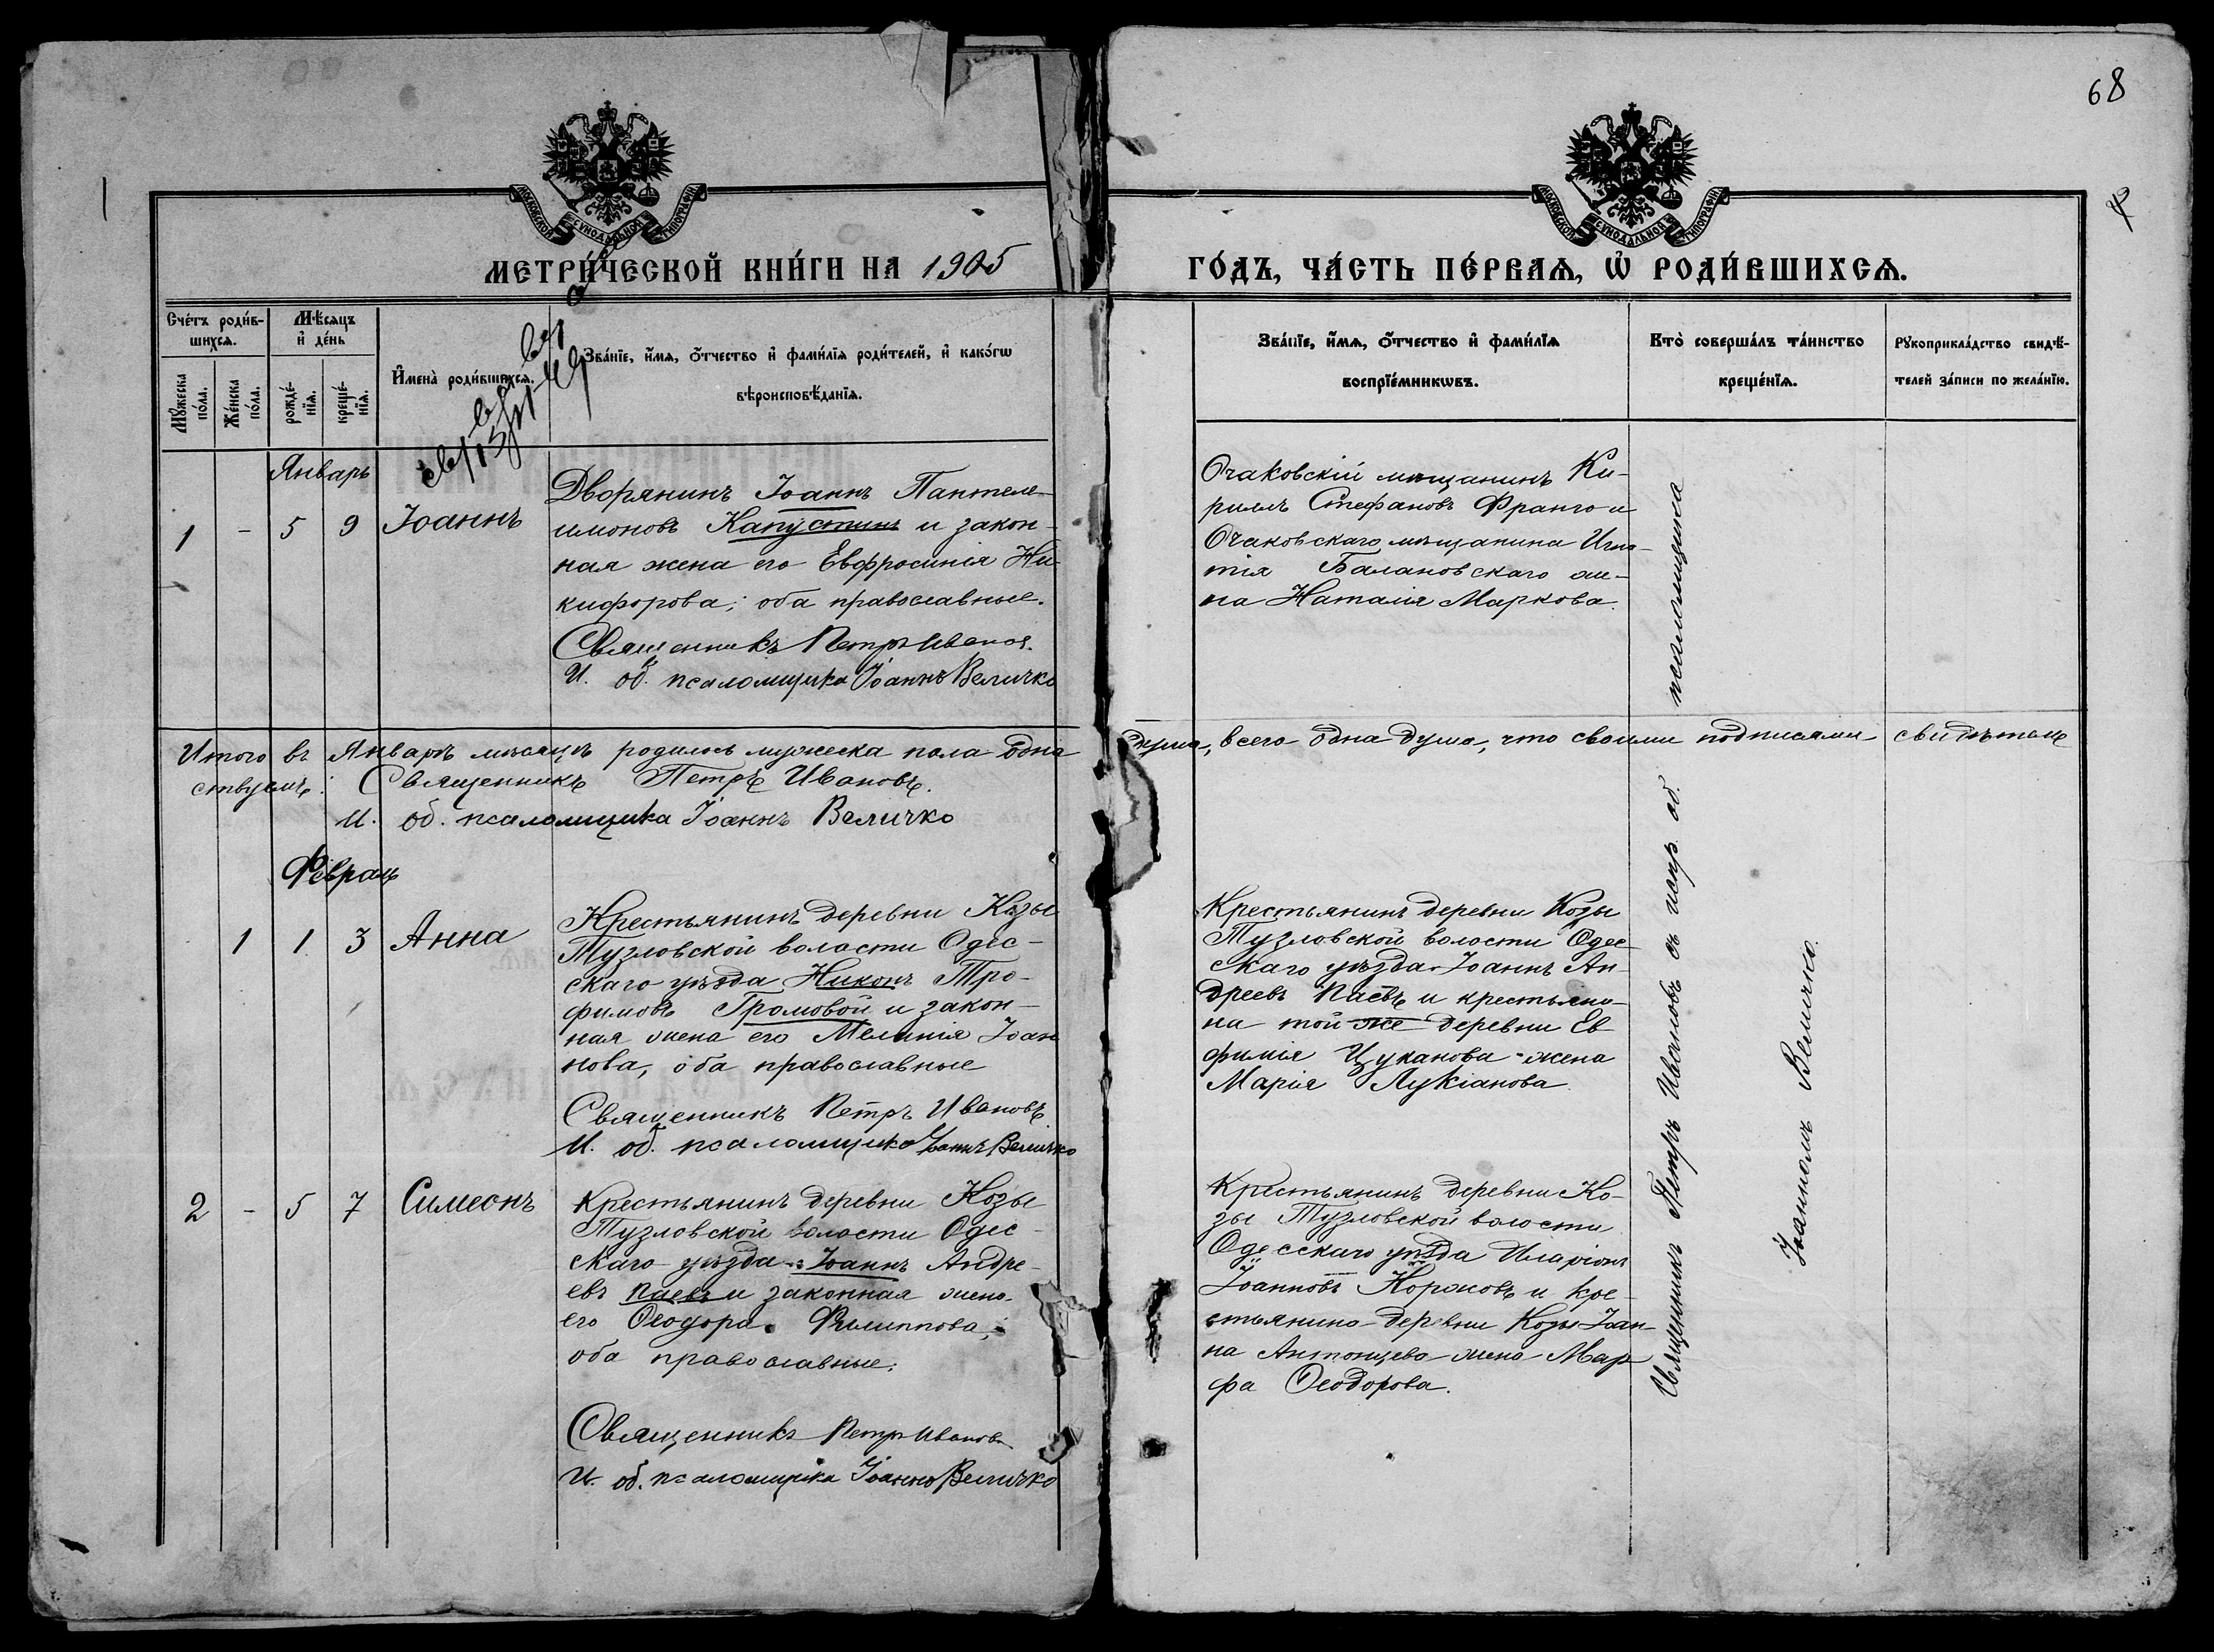 68
МОСКОВСКОЙ СѴНОДАЛЬНОЙ ТИПОГРАФІИ
МОСКОВСКОЙ СѴНОДАЛЬНОЙ ТИПОГРАФІИ
МЕТРИ́ЧЕСКОЙ КНИ́ГИ НА 1905
ГО́ДЪ, ЧА́СТЬ ПЕ́РВАЯ, Ѡ҆ РОДИ́ВШИХСЯ.
Сче́тъ роди́в-
шихся.
Мꙋжеска по́ла.
Же́нска по́ла.
Мѣ́сяцъ
и҆ де́нь
рожде́-
нїя.
креще́-
нїя.
И҆мена̀ роди́вшихся.
Зва́нїе, и҆́мя, ѻ҆́тчество и҆ фами́лїя роди́телей, и҆ како́гѡ
вѣроисповѣ́данїя.
Зва́нїе, и҆́мя, ѻ҆́тчество и҆ фами́лїя
воспрїе́мникѡвъ.
Кто̀ соверша́лъ та́инство
креще́нїя.
Рꙋкоприкла́дство свидѣ́-
телей за́писи по жела́нїю.
Январь
1 - 5 9 Іоаннъ
Дворянинъ Іоаннъ Пантеле-
имоновъ Капустинъ и закон-
ная жена его Евфросинія Ни-
кифорова; оба православные.
Священникъ Петръ Ивановъ.
И. об. псаломщика Іоаннъ Величко
Очаковскій мѣщанинъ Ки-
риллъ Стефановъ Франго и
Очаковскаго мѣщанина Игна-
тія Балановскаго же-
на Наталія Маркова.
Итого въ Январѣ мѣсяцѣ родилось мужеска пола одна душа, всего одна душа, что своими подписями свидѣтель
ствуемъ: Священникъ Петръ Ивановъ.
И. об. псаломщика Іоаннъ Величко
Февраль
1 1 3 Анна
Крестьянинъ деревни Козы
Тузловской волости Одес-
скаго уѣзда Никонъ Тро-
фимовъ Громовой и закон-
ная жена его Меланія Іоан
нова, оба православные
Священникъ Петръ Ивановъ
И. об. псаломщика Іоаннъ Величко
Крестьянинъ деревни Козы
Тузловской волости Одес
скаго уѣзда Іоаннъ Ан-
дреевъ Паевъ и крестьяни-
на той же деревни Ев
фимія Цуканова жена
Марія Лукіанова.
2 - 5 7 Симеонъ
Крестьянинъ деревни Козы
Тузловской волости Одес-
скаго уѣзда Іоаннъ Андре-
евъ Паевъ и законная жена
его Ѳеодора Филиппова,
оба православные.
Священникъ Петръ Ивановъ
И. об. псаломщика Іоаннъ Величко
Крестьянинъ деревни Ко-
зы Тузловской волости
Одесскаго уѣзда Иларіонъ
Іоанновъ и кре-
стьянина деревни Козы Іоан-
на Антонцева жена Мар
фа Ѳеодорова.
Священникъ Петръ Ивановъ съ испр. об. псаломщика
Іоанномъ Величко.